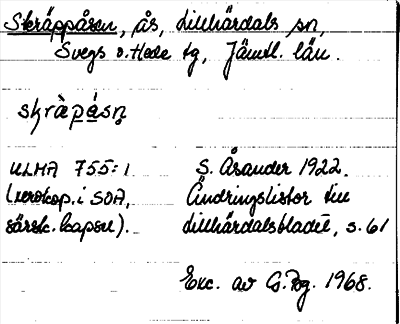 Skräppåsen, ås, Lillhärdals sn,
Svegs o. Hede tg, Jämtl. län.
skràpåsn̥
ULMA 755:1 S. Åsander 1922.
(xerokop. i SOA, Ändringslistor till
särsk. kapsel). Lillhärdalsbladet, s. 61
Exc. av G. Bg. 1968.